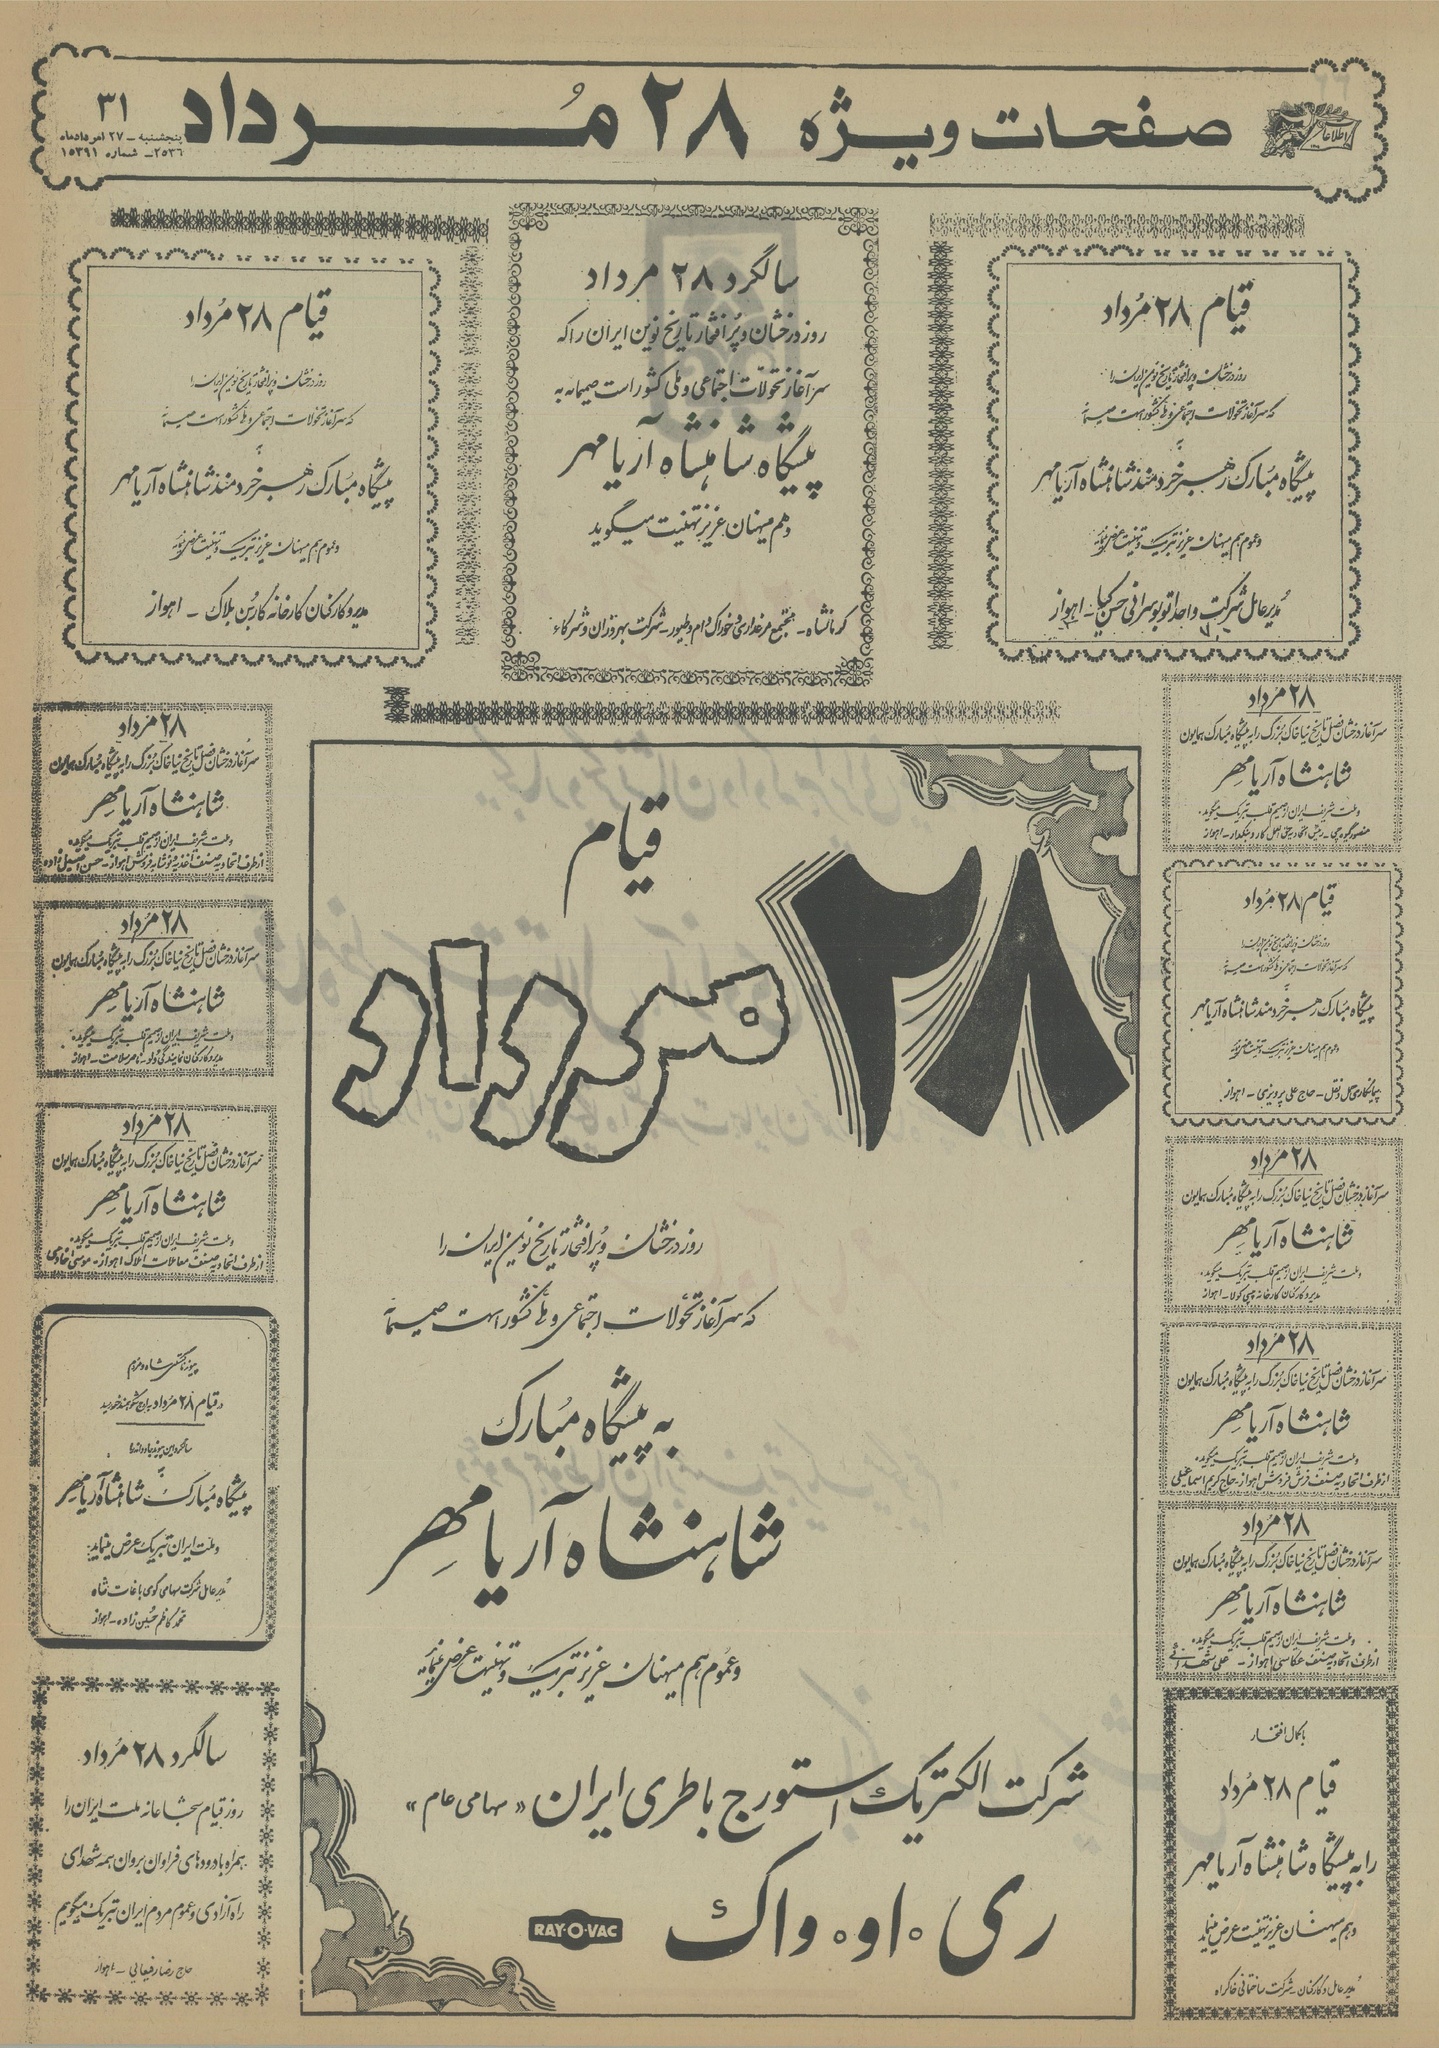 صفحات ویژه ۲۸ مُرداد
اطلاعات
۳۱
پنجشنبه - ۲۷ امردادماه
۲۵۳۶ - شماره ۱۵۳۹۱
قیام ۲۸ مُرداد
روز درخشان و پر افتخار تاریخ نوین ایران را
که سرآغاز تحولات اجتماعی و ملی کشور است صمیمانه
به
پیشگاه مبارک رهبر خردمند شاهنشاه آریامهر
و عموم هم میهنان عزیز تبریک و تهنیت عرض مینماید
مدیر عامل شرکت واحد اتوبوسرانی حسن کیا - اهواز
سالگرد ۲۸ مرداد
روز درخشان و پُر افتخار تاریخ نوین ایران را که
سرآغاز تحولات اجتماعی و ملی کشور است صمیمانه به
پیشگاه شاهنشاه آریامهر
و هم میهنان عزیز تهنیت میگوید
کرمانشاه - مجتمع مرغداری و خوراک دام و طیور - شرکت بهروزان و شرکاء
قیام ۲۸ مُرداد
روز درخشان و پر افتخار تاریخ نوین ایران را
که سرآغاز تحولات اجتماعی و ملی کشور است صمیمانه
به
پیشگاه مبارک رهبر خردمند شاهنشاه آریامهر
و عموم هم میهنان عزیز تبریک و تهنیت عرض مینماید
مدیر و کارکنان کارخانه کاربُن بلاک - اهواز
۲۸ مُرداد
سرآغاز درخشان فصل تاریخ نیاخاک بزرگ را به پیشگاه مبارک همایون
شاهنشاه آریامهر
و ملت شریف ایران از صمیم قلب تبریک میگوید.
۲۸ مُرداد
سرآغاز درخشان فصل تاریخ نیاخاک بزرگ را به پیشگاه مبارک همایون
شاهنشاه آریامهر
و ملت شریف ایران از صمیم قلب تبریک میگوید.
از طرف اتحادیه صنف اغذیه و نوشابه فروش اهواز - حسن اصیل زاده
قیام ۲۸ مُرداد
روز درخشان و پر افتخار تاریخ نوین ایران را
که سرآغاز تحولات اجتماعی و ملی کشور است صمیمانه
به
پیشگاه مبارک رهبر خردمند شاهنشاه آریامهر
و عموم هم میهنان عزیز تبریک و تهنیت عرض مینماید
پیمانکاری حمل و نقل - حاج علی پرویزی - اهواز
۲۸ مُرداد
سرآغاز درخشان فصل تاریخ نیاخاک بزرگ را به پیشگاه مبارک همایون
شاهنشاه آریامهر
و ملت شریف ایران از صمیم قلب تبریک میگوید.
مدیر و کارکنان نمایندگی دلو - ناصر سلامت - اهواز
۲۸ مُرداد
سرآغاز درخشان فصل تاریخ نیاخاک بزرگ را به پیشگاه مبارک همایون
شاهنشاه آریامهر
و ملت شریف ایران از صمیم قلب تبریک میگوید.
مدیر و کارکنان کارخانه پپسی کولا - اهواز
۲۸ مُرداد
سرآغاز درخشان فصل تاریخ نیاخاک بزرگ را به پیشگاه مبارک همایون
شاهنشاه آریامهر
و ملت شریف ایران از صمیم قلب تبریک میگوید.
از طرف اتحادیه صنف معاملات املاک اهواز - موسی خادمی
۲۸ مُرداد
سرآغاز درخشان فصل تاریخ نیاخاک بزرگ را به پیشگاه مبارک همایون
شاهنشاه آریامهر
و ملت شریف ایران از صمیم قلب تبریک میگوید.
از طرف اتحادیه صنف فرش فروش اهواز - حاج کریم اسماعیلی
پیوند ناگسستنی شاه و مردم
در قیام ۲۸ مرداد به اوج شکوهمند خود رسید
سالگرد این پیوند جاودانه را
به
پیشگاه مبارک شاهنشاه آریامهر
و ملت ایران تبریک عرض مینماید:
مدیر عامل شرکت سهامی گوی باغات شاه
محمد کاظم حسین زاده - اهواز
۲۸ مُرداد
سرآغاز درخشان فصل تاریخ نیاخاک بزرگ را به پیشگاه مبارک همایون
شاهنشاه آریامهر
و ملت شریف ایران از صمیم قلب تبریک میگوید.
از طرف اتحادیه صنف عکاسی اهواز - علی شهدائی
سالگرد ۲۸ مُرداد
روز قیام شجاعانه ملت ایران را
همراه با درودهای فراوان بروان همه شهدای
راه آزادی و عموم مردم ایران تبریک میگویم
حاج رضا رفیعائی - اهواز
با کمال افتخار
قیام ۲۸ مُرداد
را به پیشگاه شاهنشاه آریامهر
و هم میهنان عزیز تهنیت عرض مینماید
مدیر عامل و کارکنان - شرکت ساختمانی خاکراه
قیام
۲۸ مرداد
روز درخشان و پر افتخار تاریخ نوین ایران را
که سرآغاز تحولات اجتماعی و ملی کشور است صمیمانه
به پیشگاه مُبارک
شاهنشاه آریامِهر
و عموم هم میهنان عزیز تبریک و تهنیت عرض مینماید
شرکت الکتریک استورج باطری ایران «سهامی عام»
ری.او.واک
RAY-O-VAC